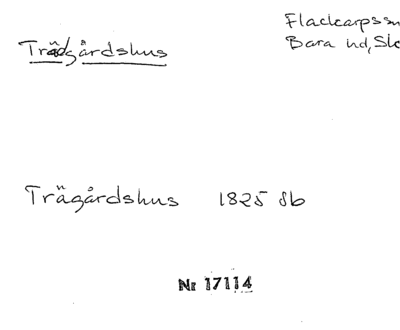 Trädgårdshus
Flackarpssn
Bara hd, Sk
Trägårdshus 1825 Sb
Nr 17114